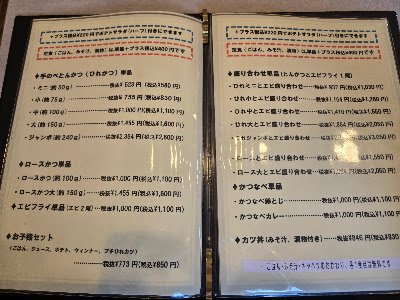 ＋プラス税込¥220円でポテトサラダ(ハーフ)付きにできます
定食(ごはん、みそ汁、漬物)は単品＋プラス税込¥400円です
◆手のべとんかつ(ひれかつ)単品
・ミニ(約50g)‥‥‥税抜¥528円(税込¥580円)
・小(約75g)‥‥‥税抜¥755円(税込¥830円)
・中(約100g)‥‥‥税抜¥1,000円(税込¥1,100円)
・大(約150g)‥‥‥税抜¥1,455円(税込¥1,600円)
・ジャンボ(約240g)‥‥‥税抜¥2,364円(税込¥2,600円)
◆ロースかつ単品
・ロースかつ(約100g)‥‥‥税抜¥1,000円(税込¥1,100円)
・ロースかつ大(約150g)‥‥‥税抜¥1,455円(税込¥1,600円)
◆エビフライ単品(エビ2尾)税抜¥1,000円(税込¥1,100円)
◆お子様セット
(ごはん、ジュース、ポテト、ウィンナー、プチひれカツ)
‥‥‥税抜¥773円(税込¥850円)
＋プラス税込¥220円でポテトサラダ(ハーフ)付きにできます
定食(ごはん、みそ汁、漬物)は単品＋プラス税込¥400円です
◆盛り合わせ単品(とんかつとエビフライ1尾)
・ひれミニとエビ盛り合わせ‥‥‥税抜¥937円(税込¥1,030円)
・ひれ小とエビ盛り合わせ
・ひれ中とエビ盛り合わせ
・ひれ大とエビ盛り合わせ
・ひれジャンボとエビ盛り合わせ
・ロースとエビ盛り合わせ
・ロース大とエビ盛り合わせ
◆かつなべ単品
・かつなべ卵とじ‥‥‥税抜¥1,000円(税込¥1,100円)
・かつなべカレー‥‥‥税抜¥1,000円(税込¥1,100円)
◆カツ丼(みそ汁、漬物付き)‥‥‥税抜¥846円(税込¥930